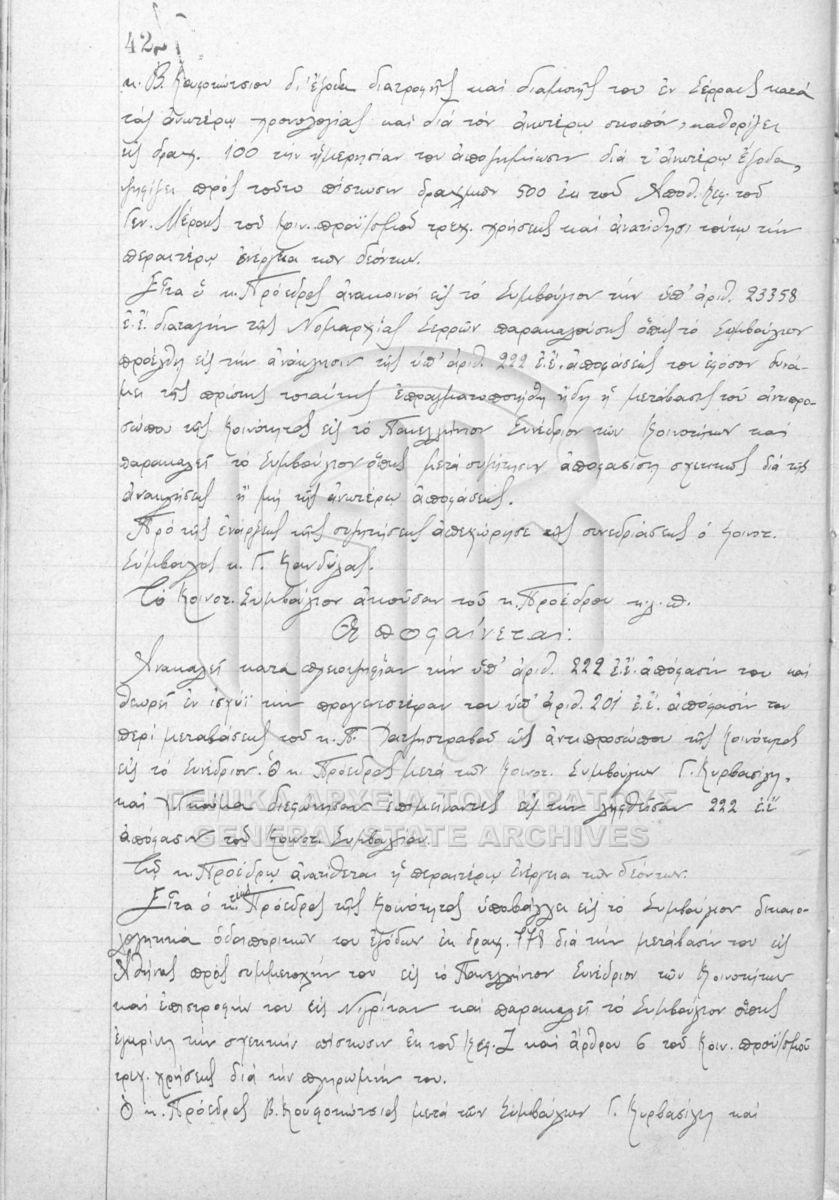 42
κ. Β. Κουφοκώτσιου δι' έξοδα διατροφής και διαμονής του εν Σέρραις κατά
τας ανωτέρω χρονολογίας και διά τον ανωτέρω σκοπόν, καθορίζει
εις δραχ. 100 την ημερησίαν του αποζημίωσιν διά τ' ανωτέρω έξοδα,
ψηφίζει προς τούτο πίστωσιν δραχμών 500 εκ του Αποθ. Κεφ. του
Γεν. Μέρους του Κοιν. προϋ/σμού τρεχ. χρήσεως και ανατίθησι τούτω την
περαιτέρω ενέργεια των δεόντων.
Είτα ο κ. Πρόεδρος ανακοινοί εις το Συμβούλιον την υπ' αριθ. 23358
ε.έ. διαταγήν της Νομαρχίας Σερρών παρακαλούσης όπως το Συμβούλιον
προέλθη εις την ανάκλησιν της υπ' αριθ. 222 ε.έ. αποφάσεώς του εφόσον δυνά-
μει της πρώτης τοιαύτης επραγματοποιήθη ήδη η μετάβασις του αντιπρο-
σώπου της Κοινότητος εις το Πανελλήνιον Συνέδριον των Κοινοτήτων και
παρακαλεί το Συμβούλιον όπως μετά συζήτησιν αποφασίση σχετικώς διά της
ανακλήσεως ή μη της ανωτέρω αποφάσεως.
Προ της ενάρξεως της συζητήσεως απεχώρησε της συνεδριάσεως ο Κοινοτ.
Σύμβουλος κ. Γ. Κανδύλας.
Το Κοινοτ. Συμβούλιον ακούσαν του κ. Προέδρου κ.λ.π.
Αποφαίνεται:
Ανακαλεί κατά πλειοψηφίαν την υπ' αριθ. 222 ε.έ. απόφασίν του και
θεωρεί εν ισχύϊ την προγενεστέραν του υπ' αριθ. 201 ε.έ. απόφασίν του
περί μεταβάσεως του κ. Π. Χατζηστραβού ως αντιπροσώπου της Κοινότητος
εις το Συνέδριον. Ο κ. Πρόεδρος μετά των Κοινοτ. Συμβούλων Γ. Κυρβασίλη,
και διεφώνησαν επιμείναντες εις την ληφθείσαν 222 ε.έ
απόφασιν του Κοινοτ. Συμβουλίου.
Τω κ. Προέδρω ανατίθεται η περαιτέρω ενέργεια των δεόντων.
Είτα ο κ. Πρόεδρος της Κοινότητος υποβάλλει εις το Συμβούλιον δικαιο-
λογητικά οδοιπορικών του εξόδων εκ δραχ. 778 διά την μετάβασίν του εις
Αθήνας προς συμμετοχήν του εις το Πανελλήνιον Συνέδριον των Κοινοτήτων
και επιστροφήν του εις Νιγρίταν και παρακαλεί το Συμβούλιον όπως
εγκρίνη την σχετικήν πίστωσιν εκ του Κεφ. Ζ και άρθρου 6 του Κοιν. προϋ/σμού
τρεχ. χρήσεως διά την πληρωμήν του.
Ο κ. Πρόεδρος Β. Κουφοκώτσιος μετά των Συμβούλων Γ. Κυρβασίλη και
ΓΕΝΙΚΑ ΑΡΧΕΙΑ ΤΟΥ ΚΡΑΤΟΥΣ
GENERAL STATE ARCHIVES